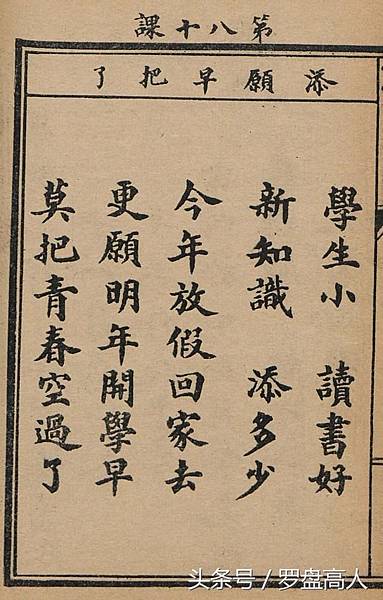 第八十課
添願早把了
學生小 讀書好
新知識 添多少
今年放假回家去
更願明年開學早
莫把青春空過了
头条号 / 罗盘高人